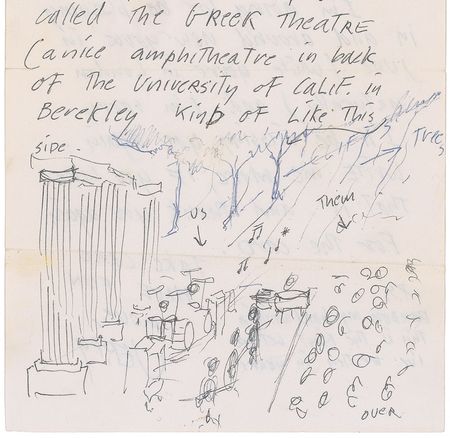 called the GREEK THEATRE
(a nice amphitheatre in back
of the University of Calif. in
Berekley Kind of Like This
side.
Trees
us
Them
OVER